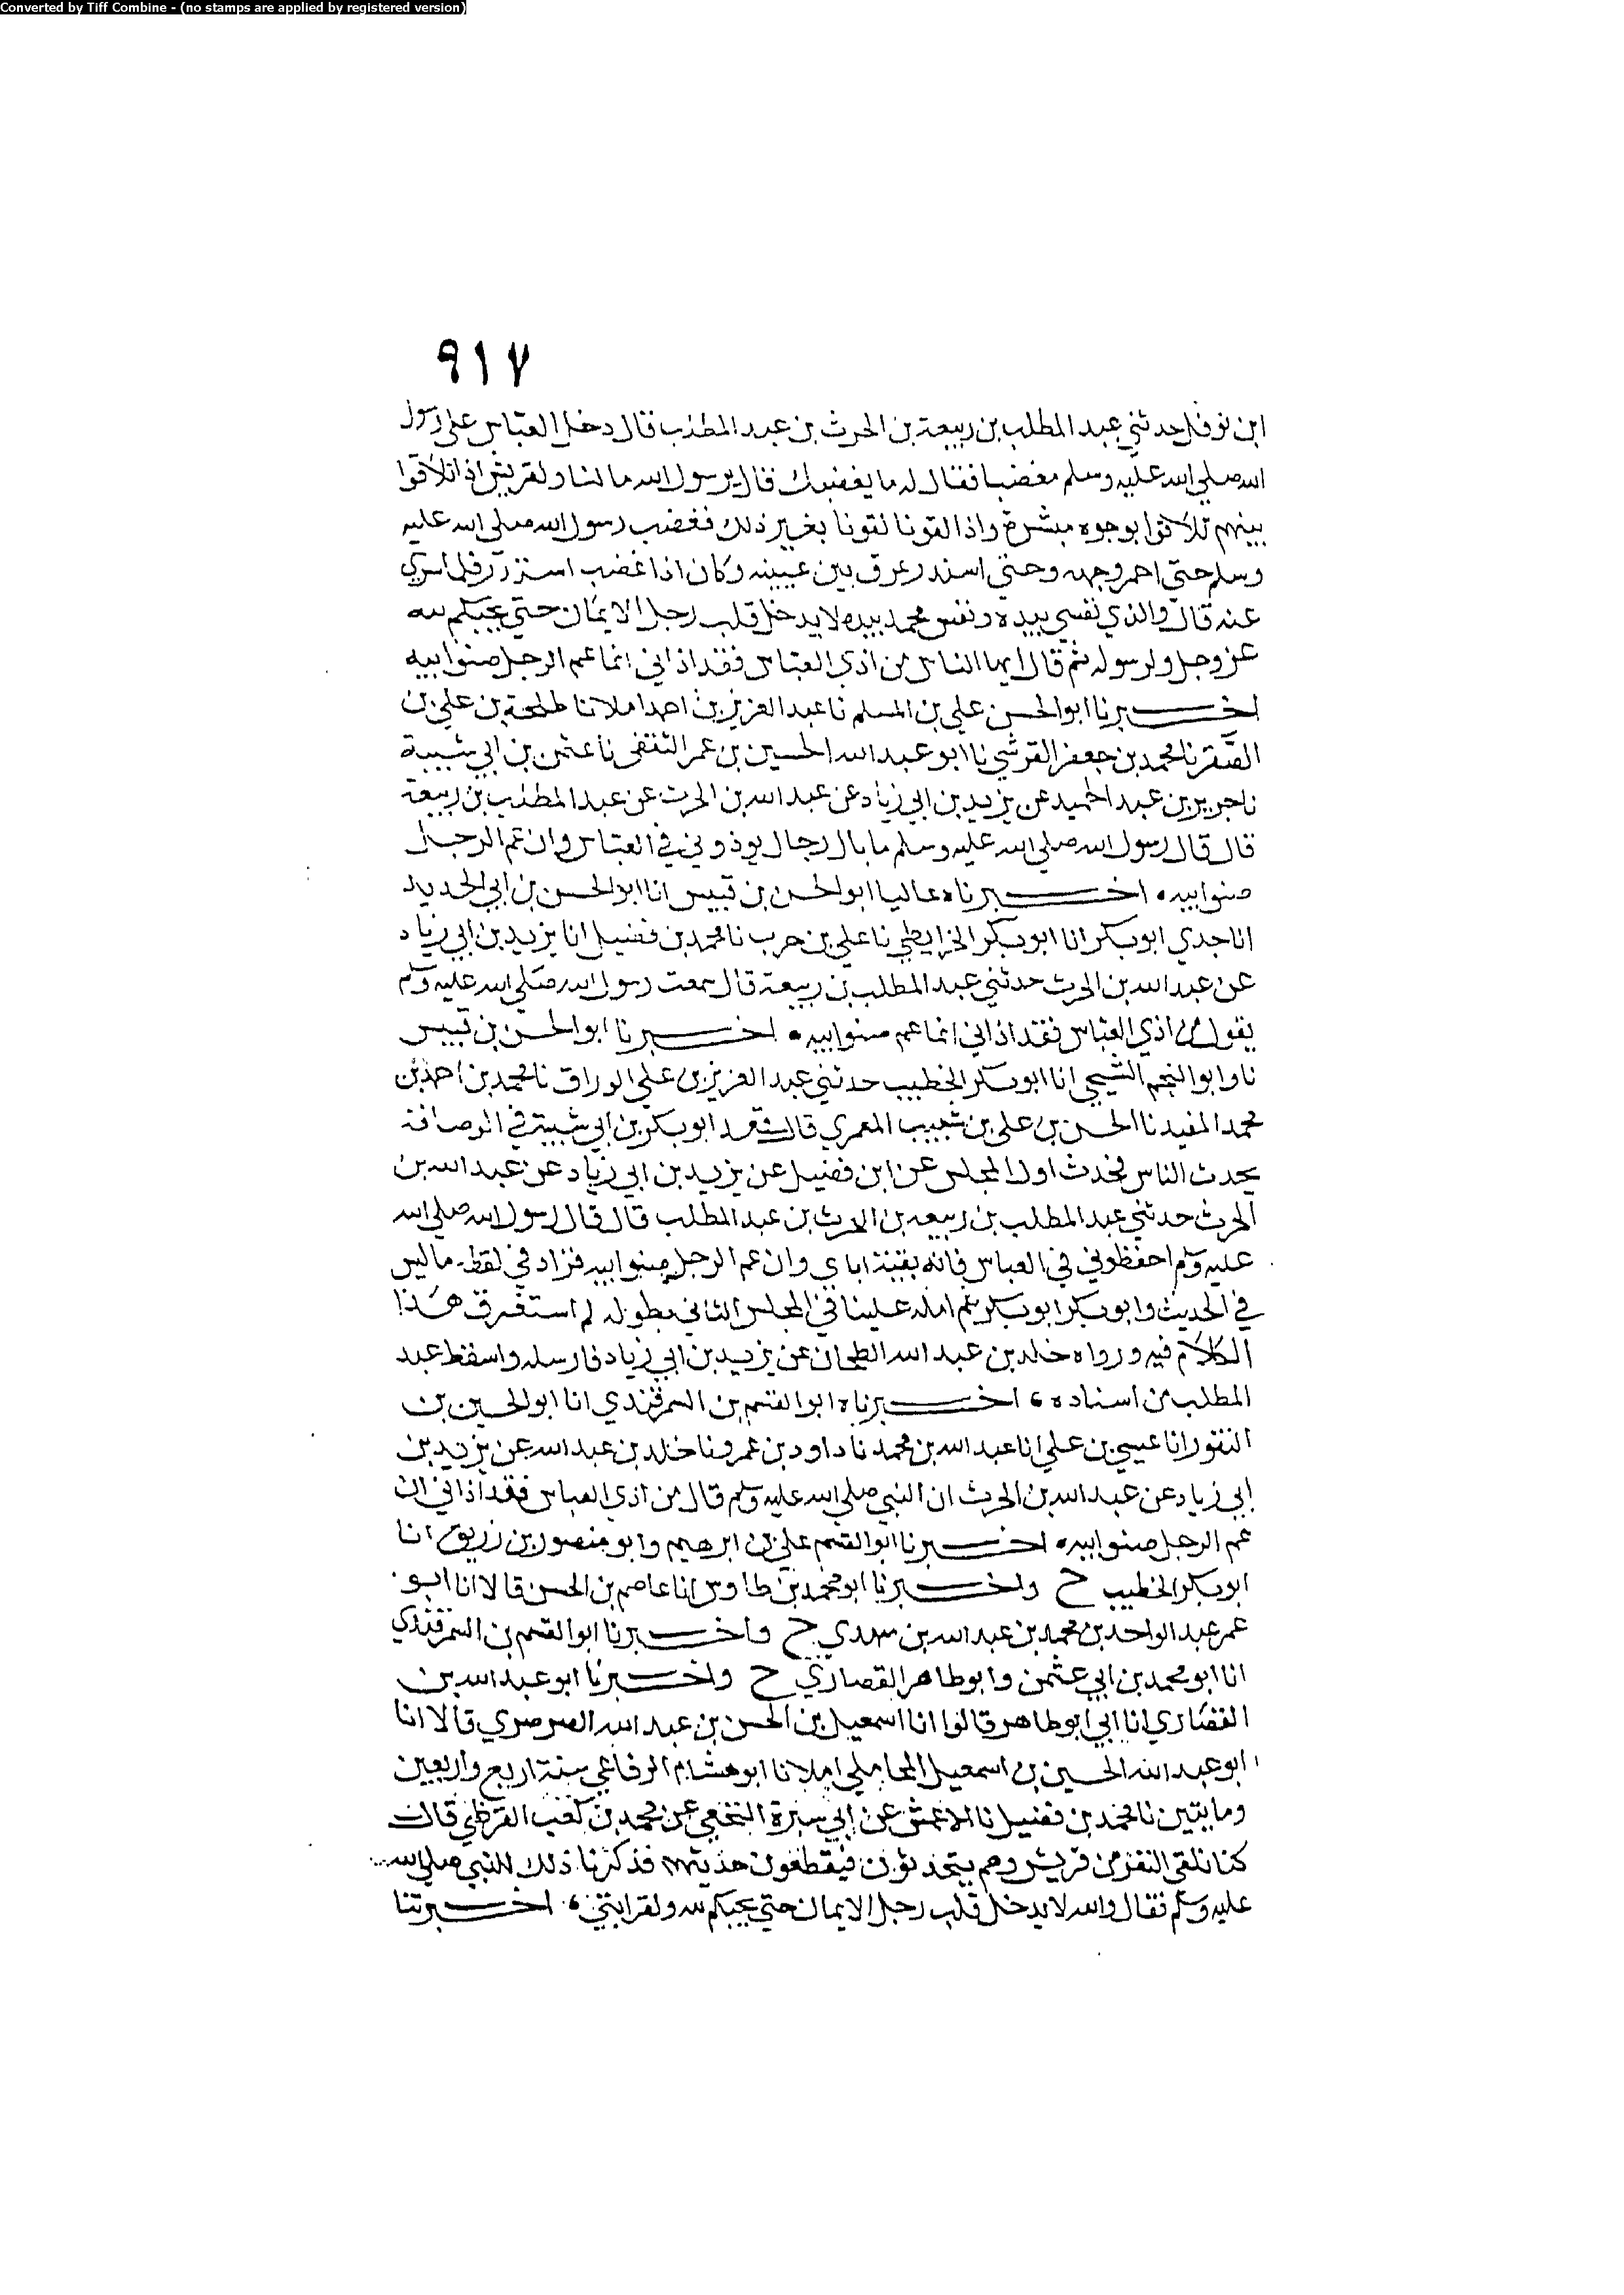 Converted by Tiff Combine - (no stamps are applied by registered version)
٩١٧
ابن نوفل حدثني عبد المطلب بن ربيعة بن الحرث بن عبد المطلب قال دخل العباس على رسول
الله صلى الله عليه وسلم مغضبا فقال له ما يغضبك قال يرسول الله ما لنا ولقريش اذا تلاقوا
بينهم تلاقوا بوجوه مبشرة واذا لقونا لقونا بغير ذلك فغضب رسول الله صلى الله عليه
وسلم حتى احمر وجهه وحتى استدر عرق بين عينيه وكان اذا غضب استدر فلما سري
عنه قال والذي نفسي بيده ونفس محمد بيده لا يدخل قلب رجل الايمان حتى يحبكم لله
عز وجل ولرسوله ثم قال ايها الناس من اذى العباس فقد اذاني انما عم الرجل صنو ابيه
اخبرنا ابو الحسن علي بن المسلم نا عبد العزيز بن احمد املا نا طلحة بن علي بن
الصقر نا محمد بن جعفر القرشي نا ابو عبد الله الحسين بن عمر الثقفي نا عثمن بن ابي شيبة
نا جرير بن عبد الحميد عن يزيد بن ابي زياد عن عبد الله بن الحرث عن عبد المطلب بن ربيعة
قال قال رسول الله صلى الله عليه وسلم ما بال رجال يوذوني في العباس وان عم الرجل
صنو ابيه اخبرناه عاليا ابو الحسن بن قبيس انا ابو الحسن بن ابي الحديد
انا جدي ابو بكر انا ابو بكر الخرايطي نا علي بن حرب نا محمد بن فضيل انا يزيد بن ابي زياد
عن عبد الله بن الحرث حدثني عبد المطلب بن ربيعة قال سمعت رسول الله صلى الله عليه وسلم
يقول من اذى العباس فقد اذاني انما عم صنو ابيه اخبرنا ابو الحسن بن قبيس
نا وابو النجم الشيحي انا ابو بكر الخطيب حدثني عبد العزيز بن علي الوراق نا محمد بن احمد بن
محمد المفيد نا الحسن بن علي بن شبيب المعمري قال قعد ابو بكر بن ابي شيبة في الرصافة
يحدث الناس فحدث اول المجلس عن ابن فضيل عن يزيد بن ابي زياد عن عبد الله بن
الحرث حدثني عبد المطلب بن ربيعة بن الحرث بن عبد المطلب قال قال رسول الله صلى الله
عليه وسلم احفظوني في العباس فانه بقية اباي وان عم الرجل صنو ابيه فزاد في لفظه ما ليس
في الحديث وابو بكر ابو بكر ثم املاه علينا في المجلس الثاني بطوله لم استغرق هذا
الكلام فيه ورواه خالد بن عبد الله الطحان عن يزيد بن ابي زياد فارسله واسقط عبد
المطلب من اسناده ، اخبرناه ابو القسم بن السمرقندي انا ابو الحسين بن
النقور انا عيسى بن علي انا عبد الله بن محمد نا داود بن عمرو نا خالد بن عبد الله عن يزيد بن
ابي زياد عن عبد الله بن الحرث ان النبي صلى الله عليه وسلم قال من اذى العباس فقد اذاني ان
عم الرجل صنو ابيه اخبرنا ابو القسم علي بن ابرهيم وابو منصور بن زريق انا
ابو بكر الخطيب ح واخبرنا ابو محمد بن طاوس انا عاصم بن الحسن قالا انا ابو
عمر عبد الواحد بن محمد بن عبد الله بن مهدي ح واخبرنا ابو القسم بن السمرقندي
انا ابو محمد بن ابي عثمن وابو طاهر القصاري ح واخبرنا ابو عبد الله بن
القصاري انا ابي ابو طاهر قالوا انا اسمعيل بن الحسن بن عبد الله الصرصري قالا انا
ابو عبد الله الحسين بن اسمعيل المحاملي املا نا ابو هشام الرفاعي سنة اربع واربعين
ومايتين نا محمد بن فضيل نا الاعمش عن ابي سبرة النخعي عن محمد بن كعب القرظي قال
كنا نلقى النفر من قريش وهم يتحدثون فيقطعون حديثهم فذكرنا ذلك للنبي صلى الله
عليه وسلم فقال والله لا يدخل قلب رجل الايمان حتى يحبكم لله ولقرابتي ، اخبرتنا